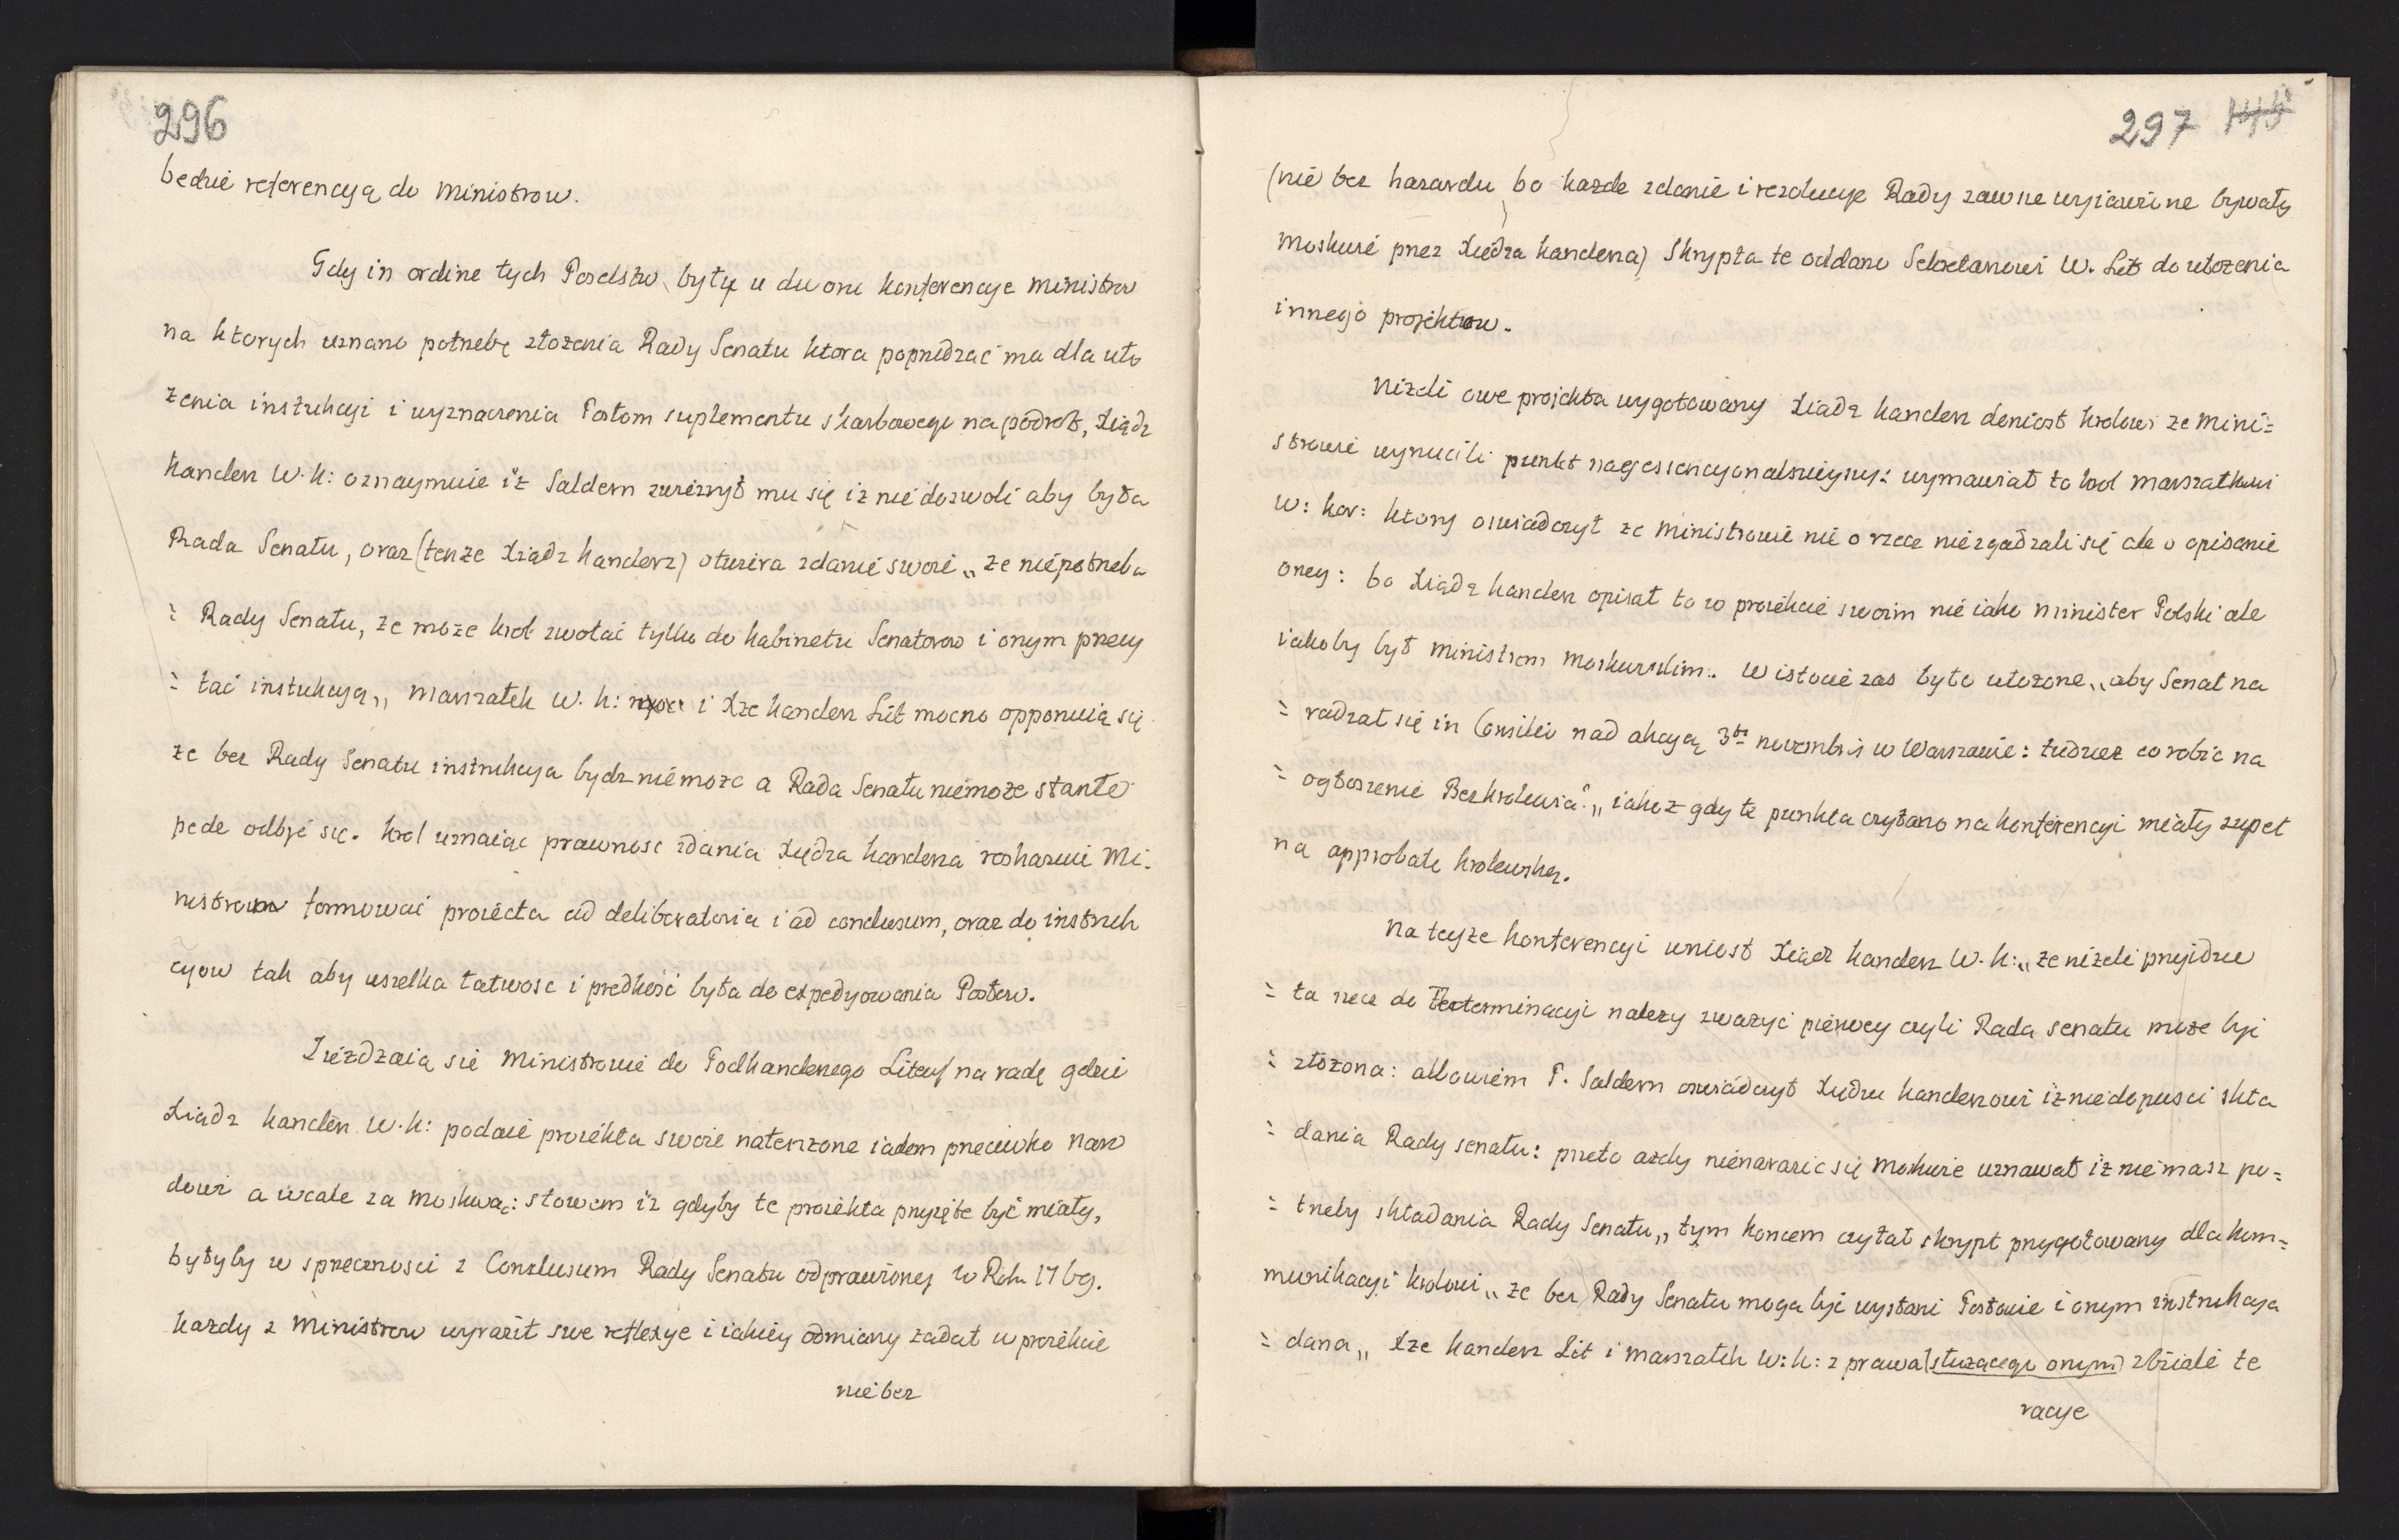 296
bedzie referencyą do Ministrow.
Gdy in ordine tych Poselstw, były u dworu konferencye Ministrow
na ktorych uznano potrzebę złożenia Rady Senatu ktora poprzedzać ma dla uło
żenia instrukcyi i wyznaczenia Posłom suplementu skarbowego na podroż, Xiądz
kanclerz W. k: oznaymuie iż Saldern zwierzył mu się iż nie dozwoli aby była
Rada Senatu, oraz (tenże Xiądz kanclerz) otwiera zdanie swoie „ że nie potrzeba
: Rady Senatu, że może krol zwołać tylko do kabinetu Senatorow i onym przeczy
: tać instrukcyą „ marszałek W. k: i Xże kanclerz Lit mocno opponuią się
że bez Rady Senatu instrukcya bydz nie może a Rada Senatu niemoże stante
pede odbyć się. krol uznaiąc prawnosc zdania Xiędza kanclerza roskazuie Mi:
nistrom formować proiecta ad deliberatoria i ad conclusum, oraz do instruk
cyow tak aby wszelka łatwosc i prędkość była do expedyowania Posłow.
Zieżdzaią się Ministrowie do Podkanclerzego Litew na radę gdzie
Xiądz kanclerz W. k: podaie proiekta swoie natęrzone iadem przeciwko naro
dowi a wcale za Moskwą: słowem iż gdyby te proiekta przyięte być miały,
byłyby w sprzecznosci z Conclusum Rady Senatu odprawioney w Roku 1769.
każdy z Ministrow wyraził swe reflexye i iakiey odmiany żadał w proiekcie
nie bez
297 145
(nie bez hazardu bo każde zdanie i rezolucye Rady zawsze wyiawione bywały
Moskwie przez Xiędza kanclerza) Skrypta te oddano Sekretarzowi W. Lit do ułożenia
innego projektow.
Niżeli owe projekta wygotowany Xiądz kanclerz doniosł krolowi że Mini:
strowie wyrzucili punkt nayessencyonalnieyszy: wymawiał to krol marszałkowi
W: kor: ktory oswiadczył że Ministrowie nie o rzecz niezgadzali się ale o opisanie
oney: bo Xiądz kanclerz opisał to w proiekcie swoim nie iako minister Polski ale
iakoby był ministrem moskiewskim. W istocie zas było ułożone „ aby Senat na
: radzał się in Consilio nad akcyą 3tia novembris w Warszawie: tudziez co robic na
: ogłoszenie Bezkrolewia: „ iakoz gdy te punkta czytano na konferencyi miały zupeł
na approbatę krolewską.
Na teyże konferencyi wniosł Xiądz kanclerz W. k: „ że niżeli przyidzie
: ta rzecz do determinacyi należy zważyć pierwey czyli Rada senatu może być
: złożona: albowiem P. Saldern oswiadczył Xiędzu kanclerzowi iż niedopusci skła
: dania Rady senatu: przeto ażdy nienarazic się Moskwie uznawał iż niemasz po:
: trzeby składania Rady Senatu „ tym koncem czytał skrypt przygotowany dla kom:
munikacyi krolowi „ że bez Rady Senatu moga być wysłani Posłowie i onym instrukcya
: dana „ Xże kanclerz Lit i marszałek W: k: z prawa (służącego onym) zbiiali te
racye